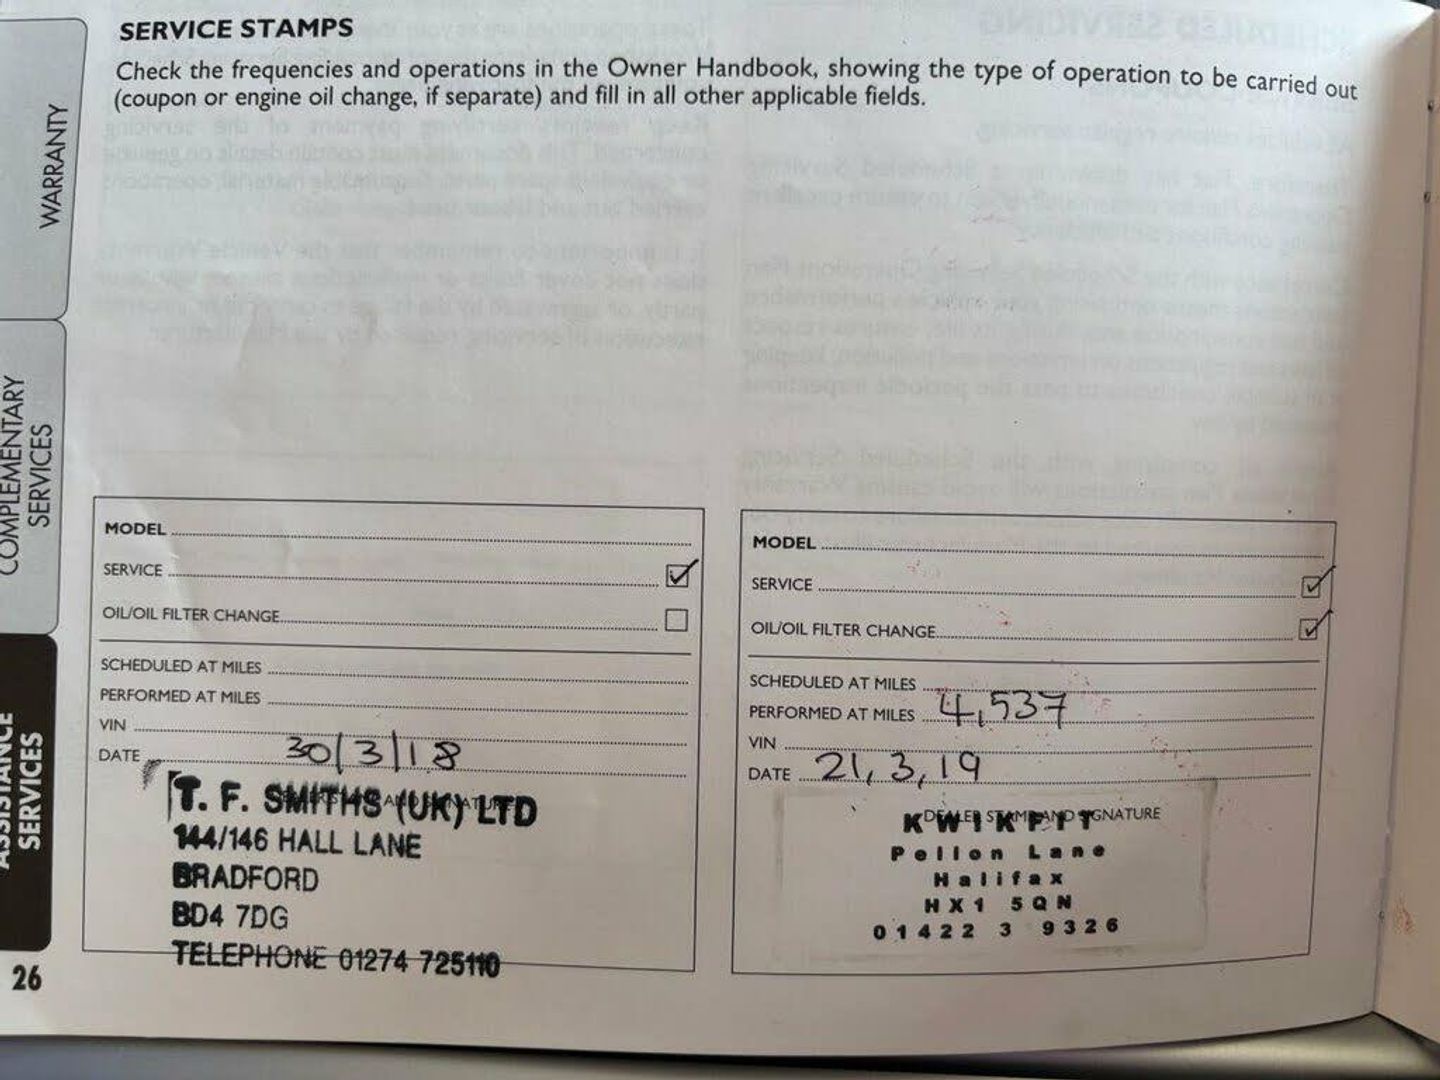 SERVICE STAMPS
Check the frequencies and operations in the Owner Handbook, showing the type of operation to be carried out
(coupon or engine oil change, if separate) and fill in all other applicable fields.
WARRANTY
COMPLEMENTARY
SERVICES
ASSISTANCE
SERVICES
26
MODEL
SERVICE
OIL/OIL FILTER CHANGE
SCHEDULED AT MILES
PERFORMED AT MILES
VIN
DATE 30/3/18
T. F. SMITHS (UK) LTD
144/146 HALL LANE
BRADFORD
BD4 7DG
TELEPHONE 01274 725110
MODEL
SERVICE
OIL/OIL FILTER CHANGE
SCHEDULED AT MILES
PERFORMED AT MILES 4,537
VIN
DATE 21,3,19
DEALER STAMP AND SIGNATURE
KWIKFIT
Pellon Lane
Halifax
HX1 5QN
01422 3 9326